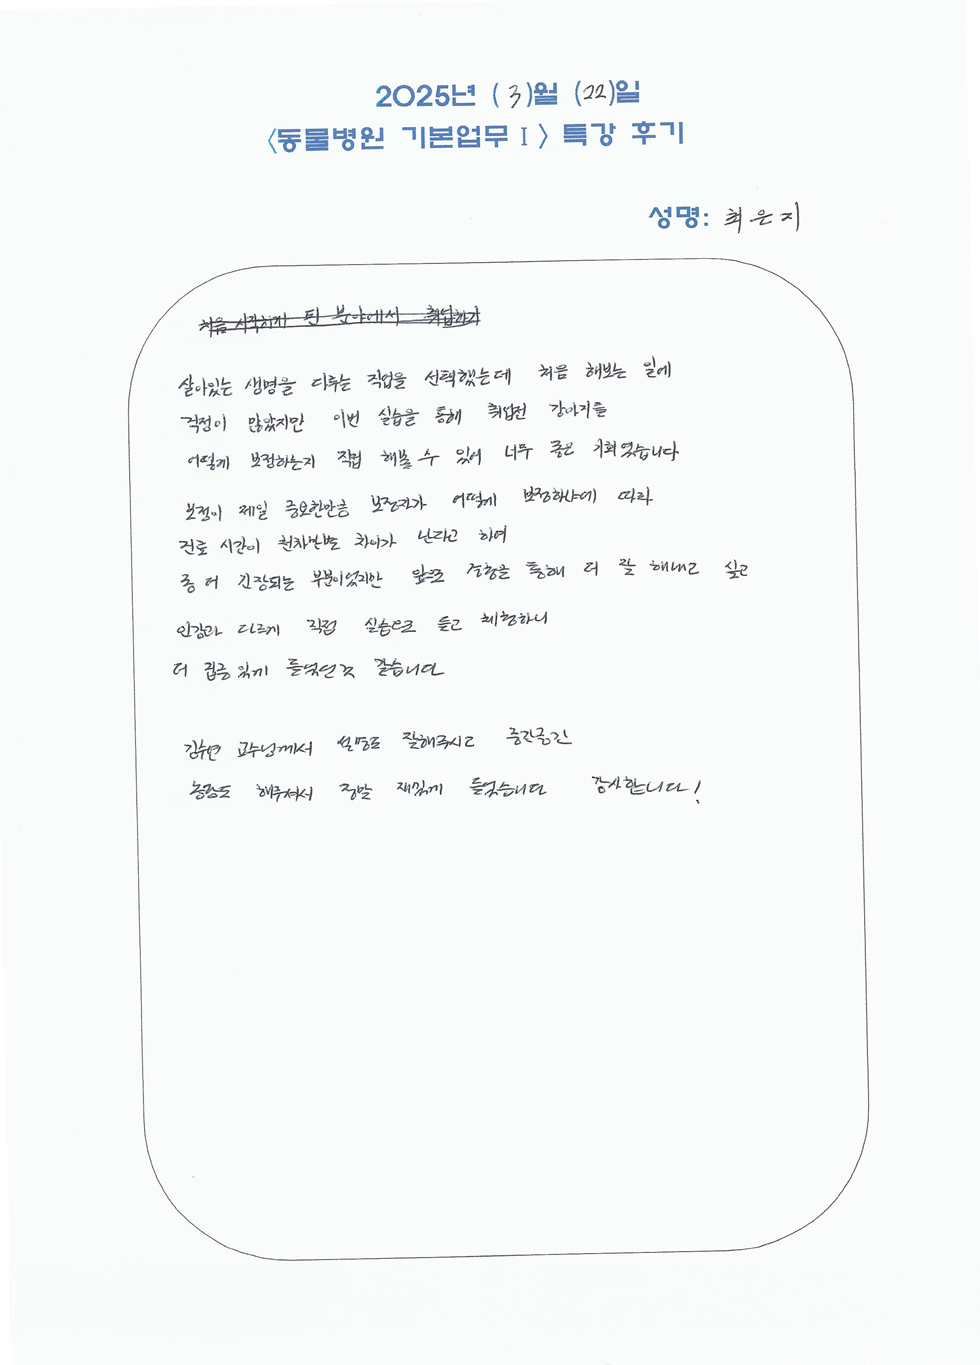 2025년 (3)월 (22)일
<동물병원 기본업무 I> 특강 후기
성명: 최은지
처음 시작하게 된 분야에서 취업하기
살아있는 생명을 다루는 직업을 선택했는데 처음 해보는 일에
걱정이 많았지만 이번 실습을 통해 취업전 강아지를
어떻게 보정하는지 직접 해볼 수 있어 너무 좋은 기회였습니다
보정이 제일 중요한만큼 보정자가 어떻게 보정하냐에 따라
진료 시간이 천차만별로 차이가 난다고 하여
좀 더 긴장되는 부분이었지만 앞으로 경험을 통해 더 잘 해내고 싶고
인강과 다르게 직접 실습으로 듣고 체험하니
더 집중있게 들었던것 같습니다
김수연 교수님께서 설명도 잘해주시고 중간중간
농담도 해주셔서 정말 재밌게 들었습니다 감사합니다!